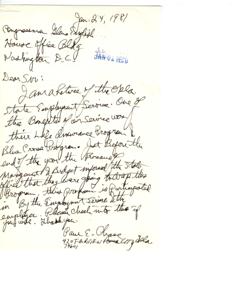 Jan. 24, 1981
Congressman Glenn English
House Office Bldg
Washington D.C.
Dear Sir:
I am a retiree of the Okla
State Employment Service. One of
the Benefits Main Service won
their Life Insurance Program &
Blue Cross Program. Just before the
end of the year the
Management & Budget informed the State
Office that they were going to drop this
Program. this program is participated
in By the Employment Service
employee Please check into this if
you will. Thank you
Paul E.
Okla